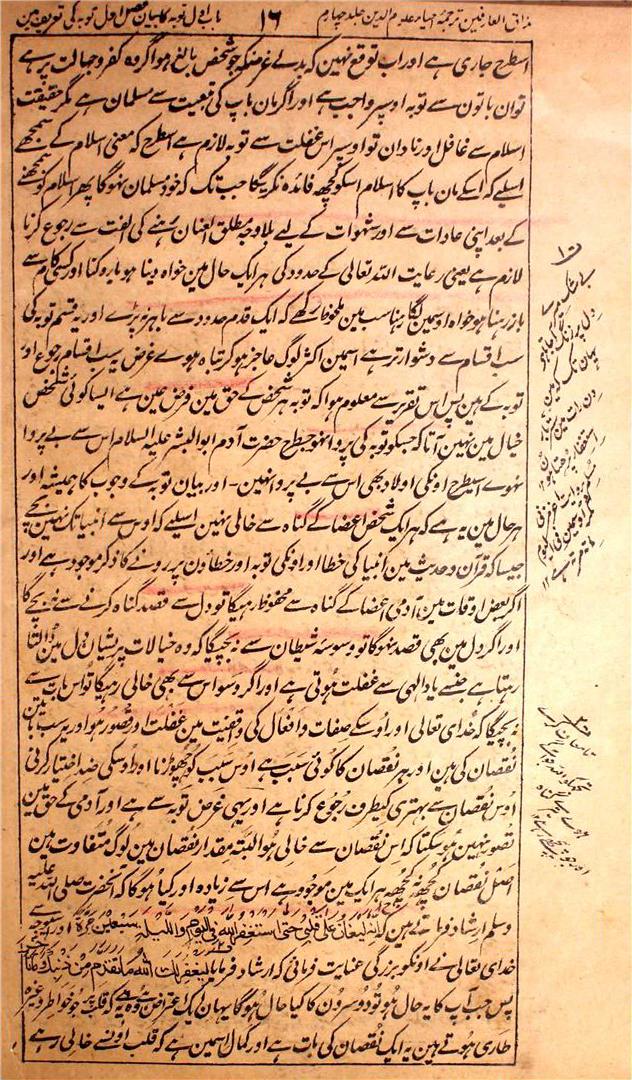 مذاق العارفین ترجمہ احیاء علوم الدین جلد چہارم
۱۶
باب اول توبہ کا بیان فصل اول توبہ کی تعریف مین
اسطرح جاری ہے اور اب توقع نہین کہ بدلے غرضکہ جو شخص بالغ ہو اگر وہ کفر و جہالت پر ہے
توان باتون سے توبہ اوسپر واجب ہے اور اگر مان باپ کی تبعیت سے مسلمان ہے مگر حقیقت
اسلام سے غافل اور نادان تو اوسپر اس غفلت سے توبہ لازم ہے اسطرح کہ معنی اسلام کے سمجھے
اسلیے کہ اسکے مان باپ کا اسلام اسکو کچھ فائدہ نکریگا جب تک کہ خود مسلمان نہوگا پھر اسلام کو سمجھنے
کے بعد اپنی عادات سے اور شہوات کے لیے بلاوجہ مطلق العنان رہنے کی الفت سے رجوع کرنا
لازم ہے یعنی رعایت اللہ تعالی کے حدود کی ہر ایک حال مین خواہ دینا ہو یا روکنا اور کسی کام سے
باز رہنا ہو خواہ اوسمین لگا رہنا سب مین ملحوظ رکھے کہ ایک قدم حدود سے باہر نہ پڑے اور یہ قسم توبہ کی
سب اقسام سے دشوار تر ہے اسمین اکثر لوگ عاجز ہو کر تباہ ہوے غرض یہ سب اقسام رجوع اور
توبہ کے ہین پس اس تقریر سے معلوم ہوا کہ توبہ ہر شخص کے حق مین فرض عین ہے ایسا کوئی شخص
خیال مین نہین آتا کہ جسکو توبہ کی پروا نہو جسطرح حضرت آدم ابو البشر علیہ السلام اس سے بے پروا
نہوے اسیطرح اونکی اولاد بھی اس سے بے پروا نہین - اور بیان توبہ کے وجوب کا ہمیشہ اور
ہر حال مین یہ ہے کہ ہر ایک شخص اعضا کے گناہ سے خالی نہین اسلیے کہ اوس سے انبیا تک نہین بچے
جیسا کہ قرآن و حدیث مین انبیا کی خطا اور اونکی توبہ اور خطاؤن پر رونے کا ذکر موجود ہے اور
اگر بعض اوقات مین آدمی اعضا کے گناہ سے محفوظ رہیگا تو دل سے قصد گناہ کرنے سے نہ بچے گا
اور اگر دل مین بھی قصد نہوگا تو وسوسہ شیطان سے نہ بچیگا کہ وہ خیالات پریشان دل مین ڈالتا
رہتا ہے جنسے یاد الہی سے غفلت ہوتی ہے اور اگر وسواس سے بھی خالی رہیگا تو اس بات سے
نہ بچیگا کہ خدای تعالی اور اوسکے صفات و افعال کی واقفیت مین غفلت اور قصور ہو اور یہ سب باتین
نقصان کی ہین اور ہر نقصان کا کوئی سبب ہے اوس سبب کو چھوڑنا اور اوسکی ضد اختیار کرنی
اوس نقصان سے بہتری کیطرف رجوع کرنا ہے اور یہی غرض توبہ سے ہے اور آدمی کے حق مین
تصور نہین ہو سکتا کہ اس نقصان سے خالی ہو البتہ مقدار نقصان مین لوگ متفاوت ہین
اصل نقصان کچھ نہ کچھ ہر ایک مین موجود ہے اس سے زیادہ اور کیا ہوگا کہ آنحضرت صلی اللہ علیہ
وسلم ارشاد فرماتے ہین کہ انہ لیغان علی قلبی حتی استغفر اللہ فی الیوم واللیلۃ سبعین مرۃ اور اسی وجہ سے
خدای تعالی نے اونکو بزرگی عنایت فرمائی کہ ارشاد فرمایا لیغفر لک اللہ ما تقدم من ذنبک وما تاخر
پس جب آپ کا یہ حال ہو تو دوسرون کا کیا حال ہوگا یہان ایک اعتراض وہ یہ ہے کہ قلب پر جو خواطر وغیرہ
طاری ہوتے ہین یہ ایک نقصان کی بات ہے اور کمال اسمین ہے کہ قلب اونسے خالی رہے
بے شک میرے
دل پر زنگ آجاتا ہے
یہان تک کہ مین
دن رات مین ستر بار
استغفار پڑھتا ہون